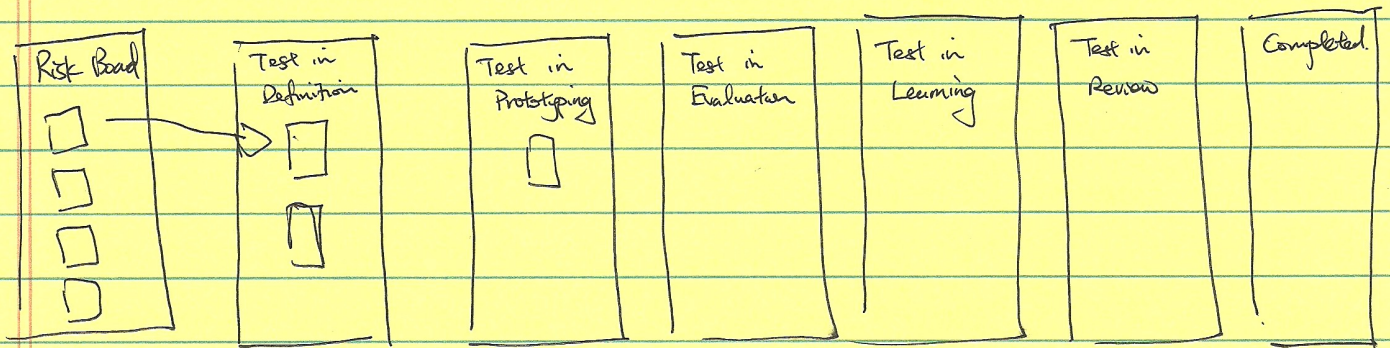 Risk Board
Test in
Definition
Test in
Prototyping
Test in
Evaluation
Test in
Learning
Test in
Review
Completed.